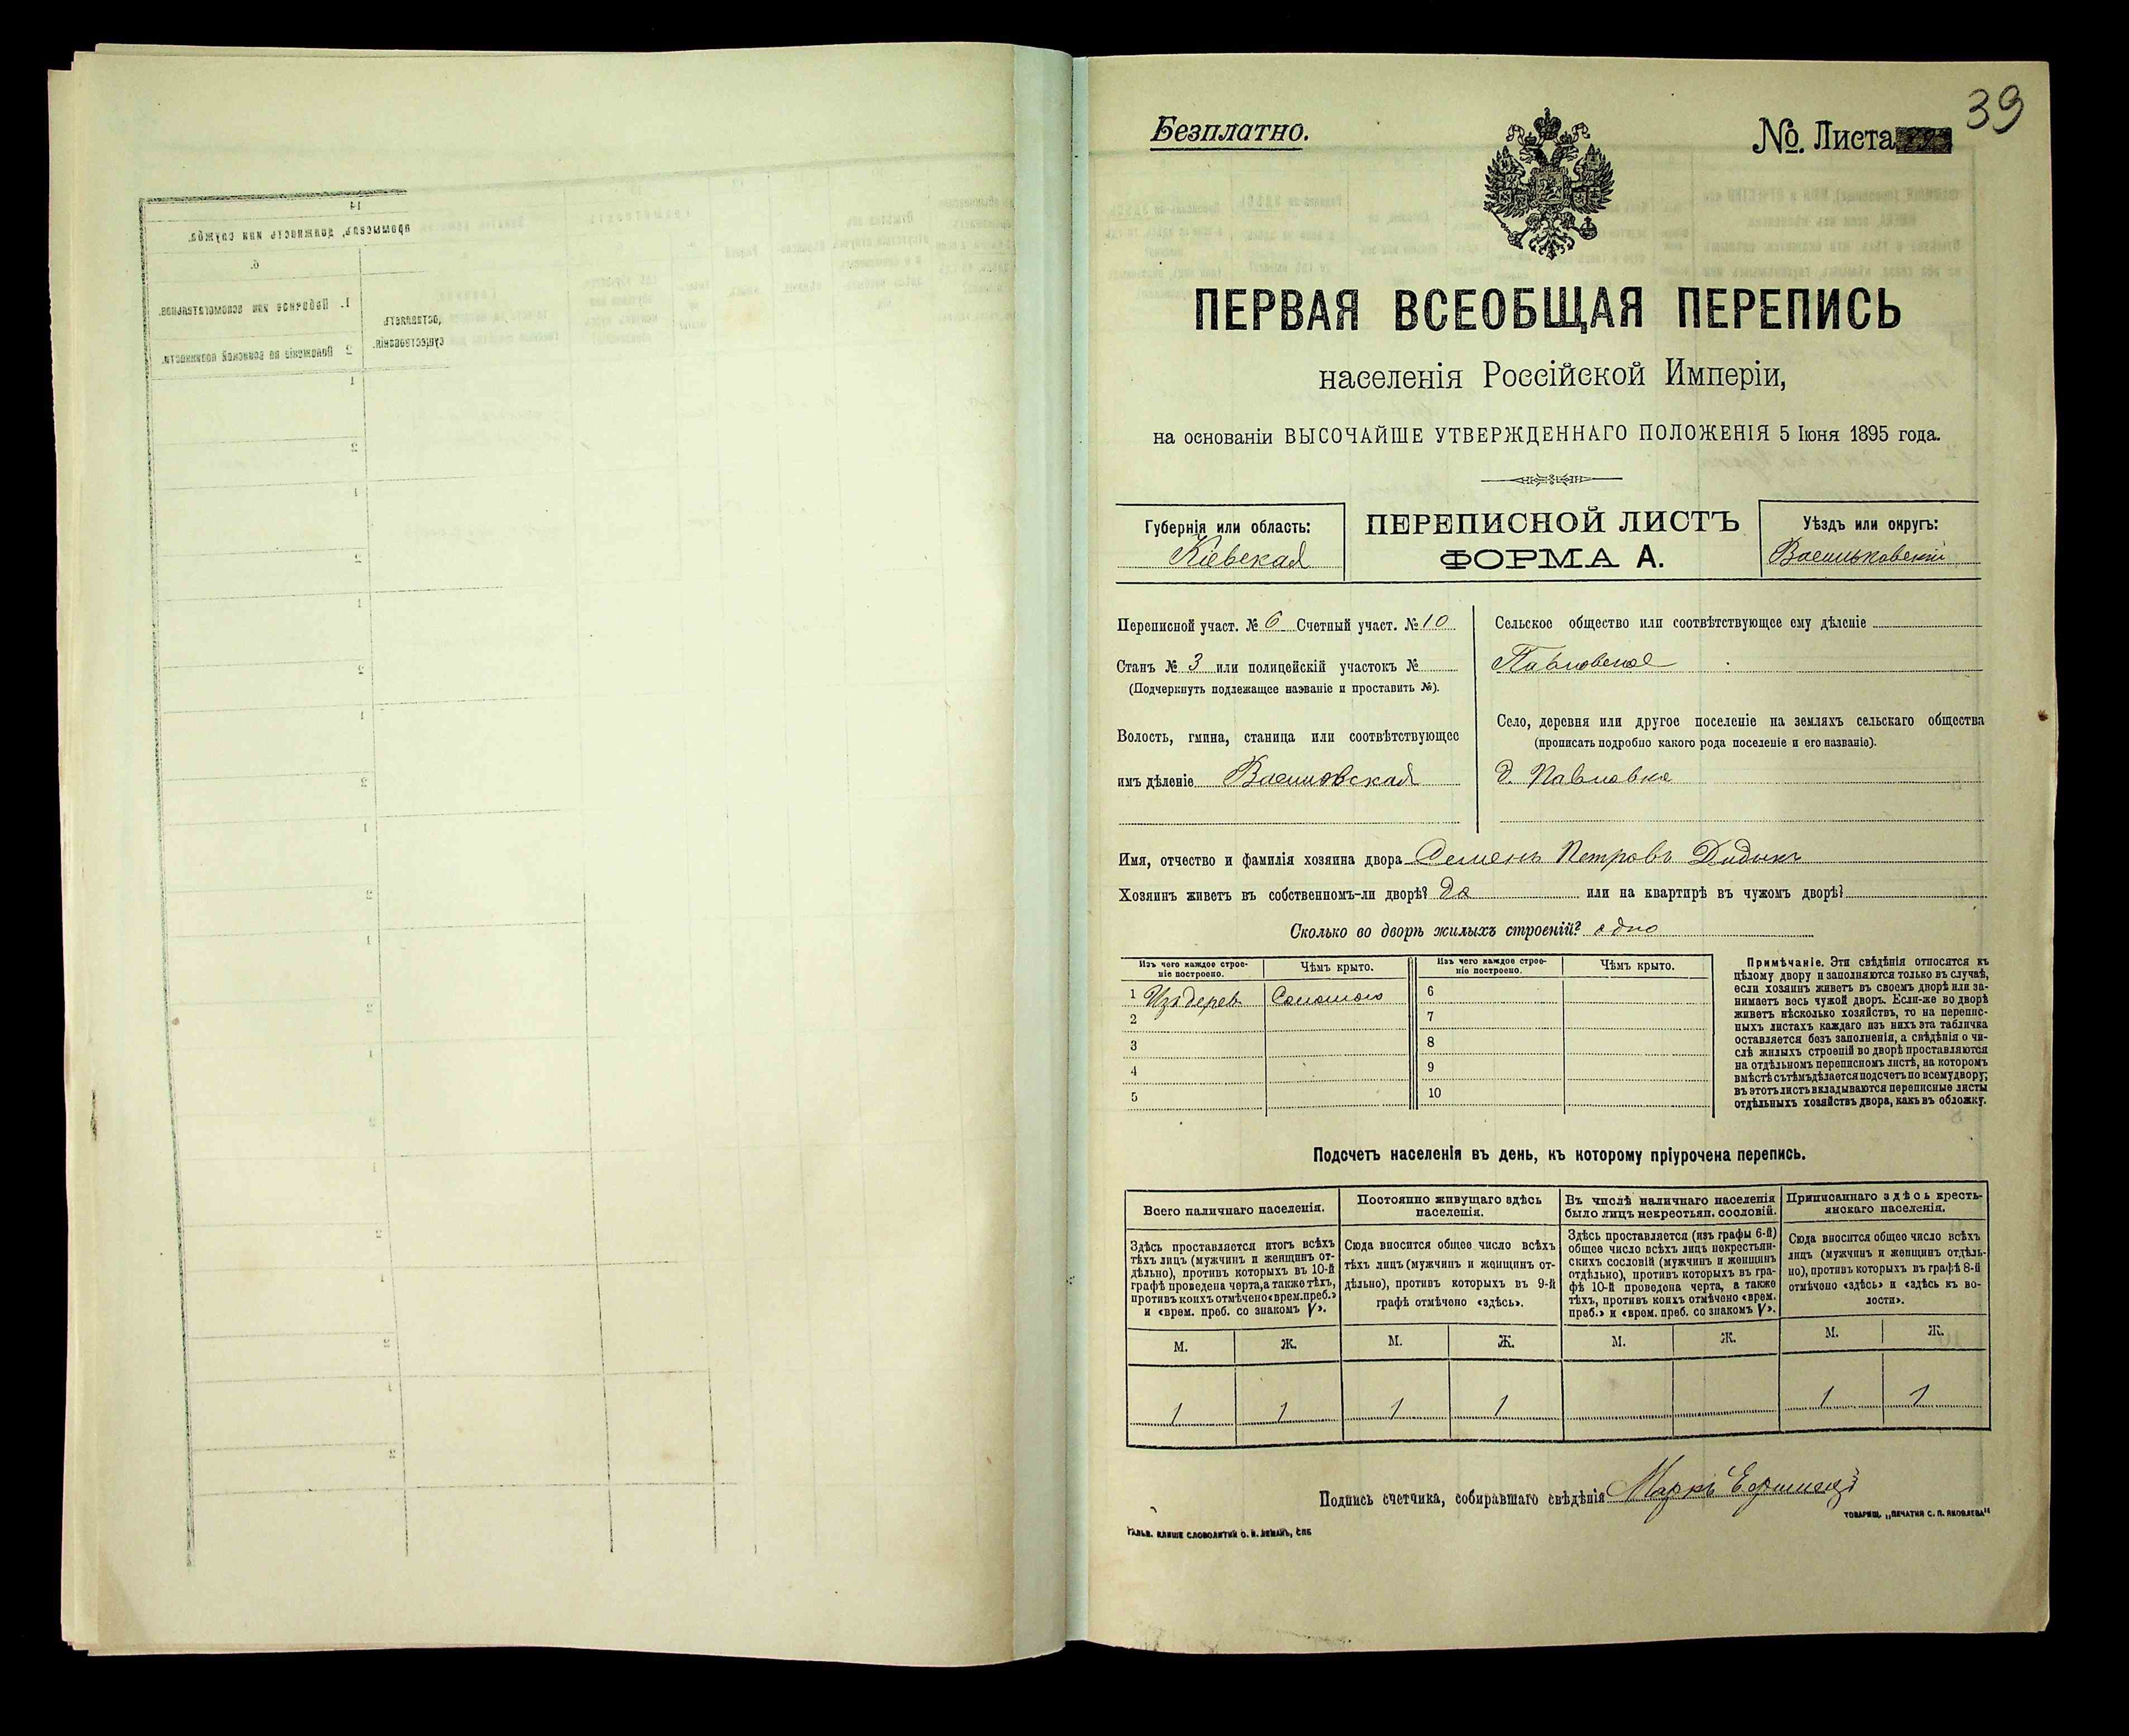 39
Безплатно.
№. Листа
ПЕРВАЯ ВСЕОБЩАЯ ПЕРЕПИСЬ
населенія Россійской Имперіи,
на основаніи ВЫСОЧАЙШЕ УТВЕРЖДЕННАГО ПОЛОЖЕНІЯ 5 Іюня 1895 года.
Губернія или область:
Кіевская
ПЕРЕПИСНОЙ ЛИСТЪ
ФОРМА А.
Уѣздъ или округъ:
Васильковскій
Переписной участ. № 6 Счетный участ. № 10
Станъ № 3 или полицейскій участокъ №
(Подчеркнуть подлежащее названіе и проставить №).
Волость, гмина, станица или соотвѣтствующее
имъ дѣленіе
Сельское общество или соотвѣтствующее ему дѣленіе
Павловское
Село, деревня или другое поселеніе на земляхъ сельскаго общества
(прописать подробно какого рода поселеніе и его названіе).
д. Павловка
Имя, отчество и фамилія хозяина двора Семенъ Петровъ Дидыкъ
Хозяинъ живетъ въ собственномъ-ли дворѣ? да или на квартирѣ въ чужомъ дворѣ?
Сколько во дворѣ жилыхъ строеній? одно
Изъ чего каждое строе-
ніе построено.
Чѣмъ крыто.
Изъ чего каждое строе-
ніе построено.
Чѣмъ крыто.
1 Изъ дерев. Соломою 6
2 7
3 8
4 9
5 10
Примѣчаніе. Эти свѣдѣнія относятся къ
цѣлому двору и заполняются только въ случаѣ,
если хозяинъ живетъ въ своемъ дворѣ или за-
нимаетъ весь чужой дворъ. Если-же во дворѣ
живетъ нѣсколько хозяйствъ, то на перепис-
ныхъ листахъ каждаго изъ нихъ эта табличка
оставляется безъ заполненія, а свѣдѣнія о чи-
слѣ жилыхъ строеній во дворѣ проставляются
на отдѣльномъ переписномъ листѣ, на которомъ
вмѣстѣ съ тѣмъ дѣлается подсчетъ по всему двору;
въ этотъ листъ вкладываются переписные листы
отдѣльныхъ хозяйствъ двора, какъ въ обложку.
Подсчетъ населенія въ день, къ которому пріурочена перепись.
Всего наличнаго населенія.
Здѣсь проставляется итогъ всѣхъ
тѣхъ лицъ (мужчинъ и женщинъ от-
дѣльно), противъ которыхъ въ 10-й
графѣ проведена черта, а также тѣхъ,
противъ коихъ отмѣчено «врем. преб.»
и «врем. преб. со знакомъ V».
Постоянно живущаго здѣсь
населенія.
Сюда вносится общее число всѣхъ
тѣхъ лицъ (мужчинъ и женщинъ от-
дѣльно), противъ которыхъ въ 9-й
графѣ отмѣчено «здѣсь».
Въ числѣ наличнаго населенія
было лицъ некрестьян. сословій.
Здѣсь проставляется (изъ графы 6-й)
общее число всѣхъ лицъ некрестьян-
скихъ сословій (мужчинъ и женщинъ
отдѣльно), противъ которыхъ въ гра-
фѣ 10-й проведена черта, а также
тѣхъ, противъ коихъ отмѣчено «врем.
преб.» и «врем. преб. со знакомъ V».
Приписаннаго здѣсь кресть-
янскаго населенія.
Сюда вносится общее число всѣхъ
лицъ (мужчинъ и женщинъ отдѣль-
но), противъ которыхъ въ графѣ 8-й
отмѣчено «здѣсь» и «здѣсь къ во-
лости».
М. Ж. М. Ж. М. Ж. М. Ж.
1 1 1 1 1 1
Подпись счетчика, собиравшаго свѣдѣнія Маркъ
ГАЛЬВ. КЛИШЕ СЛОВОЛИТНИ О. И. ЛЕМАНЪ, СПБ
ТОВАРИЩ. „ПЕЧАТНЯ С. П. ЯКОВЛЕВА"